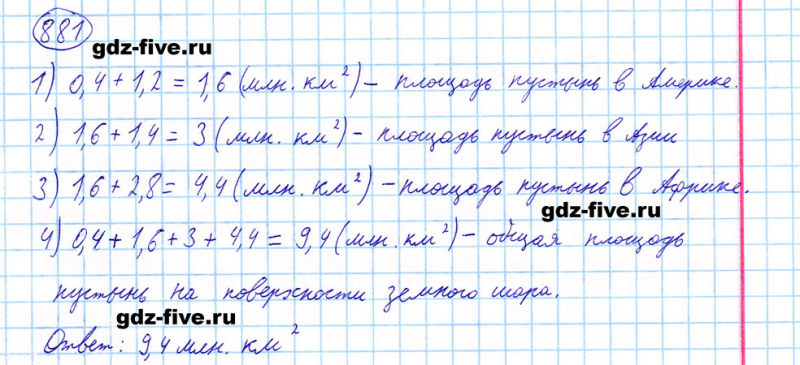 881
gdz-five.ru
1) 0,4 + 1,2 = 1,6 (млн. км²) – площадь пустынь в Америке.
2) 1,6 + 1,4 = 3 (млн. км²) – площадь пустынь в Азии
3) 1,6 + 2,8 = 4,4 (млн. км²) – площадь пустынь в Африке.
gdz-five.ru
4) 0,4 + 1,6 + 3 + 4,4 = 9,4 (млн. км²) – общая площадь
пустынь на поверхности земного шара.
gdz-five.ru
Ответ: 9,4 млн. км²